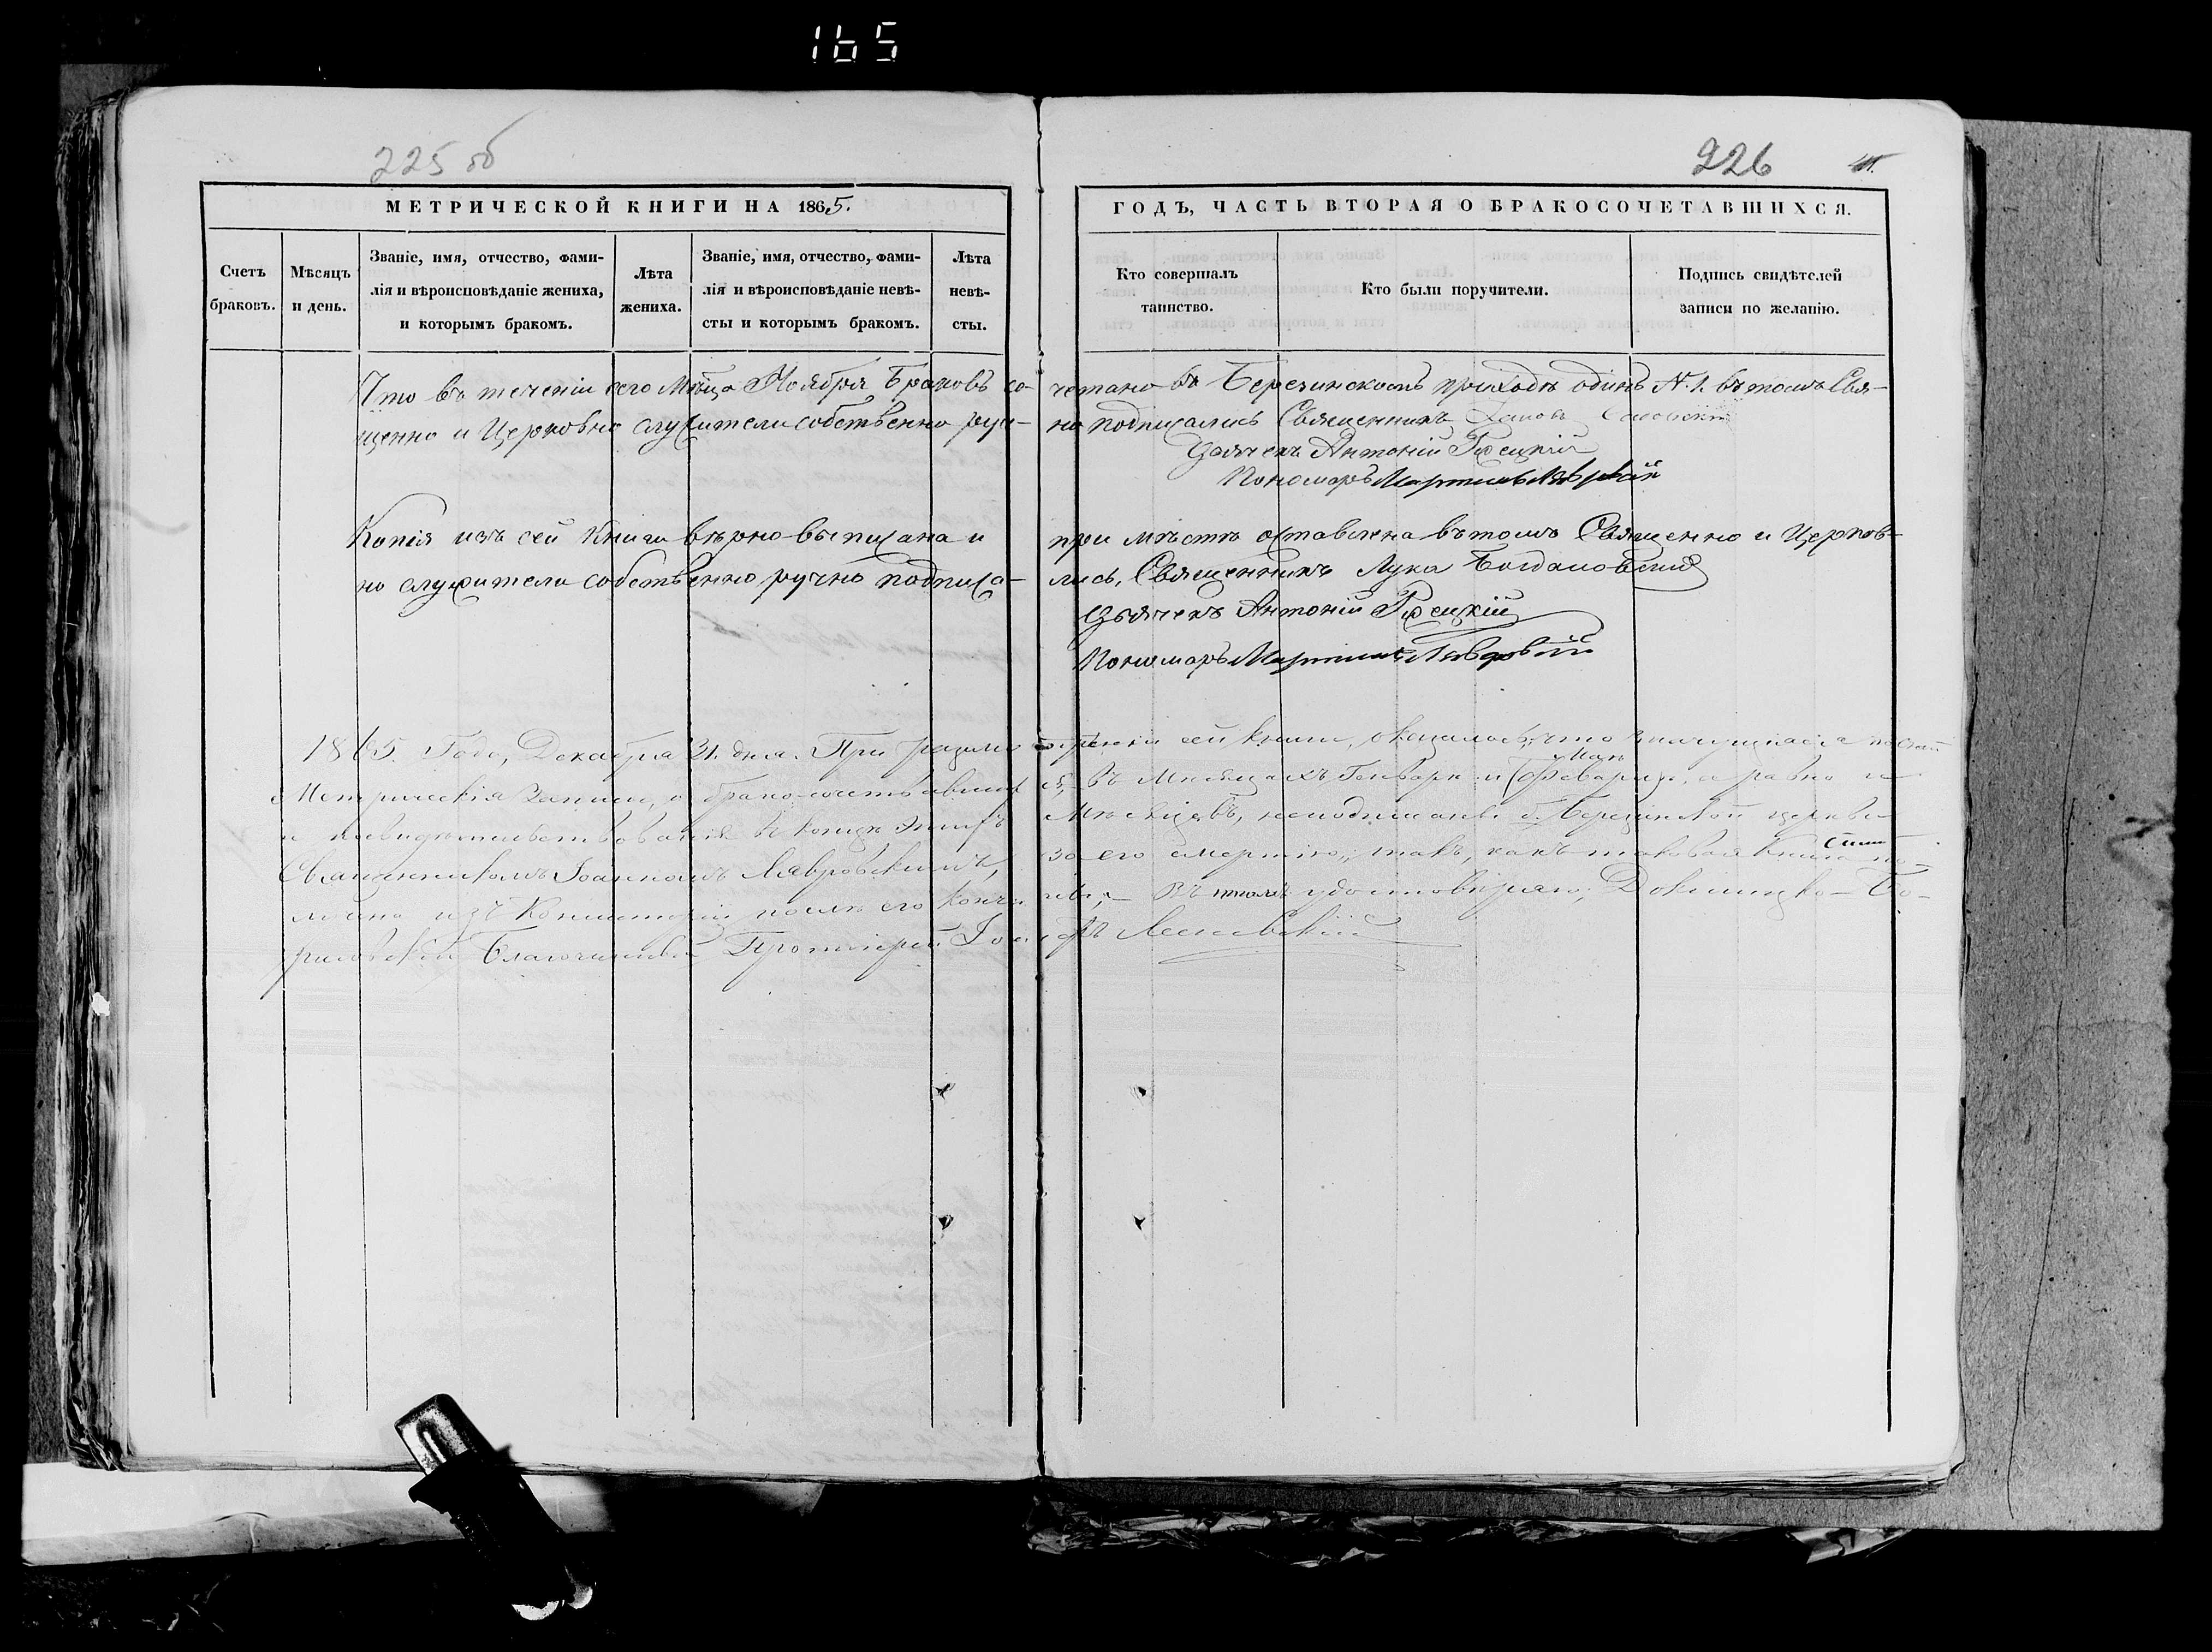 165
225 об
226
МЕТРИЧЕСКОЙ КНИГИ НА 1865.
ГОДЪ, ЧАСТЬ ВТОРАЯ О БРАКОСОЧЕТАВШИХСЯ.
Счетъ браковъ.
Мѣсяцъ и день.
Званіе, имя, отчество, фами-
лія и вѣроисповѣданіе жениха,
и которымъ бракомъ.
Лѣта жениха.
Званіе, имя, отчество, фами-
лія и вѣроисповѣданіе невѣ-
сты и которымъ бракомъ.
Лѣта невѣ-
сты.
Кто совершалъ
таинство.
Кто были поручители.
Подпись свидѣтелей
записи по желанію.
Что въ теченіи сего Мѣца Ноября Браковъ со-четано въ Березинскомъ приходѣ одинъ №. 1. въ томъ Свя-
щенно и Церковно служители собственно руч-но подписались Священникъ
Дьячекъ Антоній Грецкій
Пономаръ Мартинъ
Копія изъ сей Книги вѣрно выписана и при мѣстѣ оставлена въ томъ Священно и Церков-
но служители собственно ручно подписа-лись, Священникъ Лука Богдановскій
Дьячекъ Антоній Грецкій
Пономаръ Мартинъ Лавровскій
1865. Года, Декабря 31. дня. При разсмо-трѣніи сей книги, оказалось, что
Метрическія Записи, о брако-сочетавших ся, въ Мѣсяцахъ Генварѣ и Февралѣ, а равно и
и свидѣтельствованія въ концѣ этихъ Мѣсяцовъ, неподписаны б. Березинской церкви
Священникомъ Іоанномъ Лавровскимъ, за его смертію, такъ, какъ таковая книга по-
лучена изъ Консисторіи послѣ его кончи ны; – Въ томъ удостовѣряю, Докшицко-Бо-
рисовскій Благочинный Протоіерей Іоси фъ